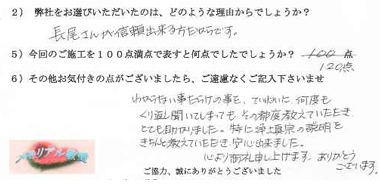 2） 弊社をお選びいただいたのは、どのような理由からでしょうか？
長尾さんが信頼出来る方だからです。
5）今回のご施工を100点満点で表すと何点でしたでしょうか？ 100 点
120点
6）その他お気付きの点がございましたら、ご遠慮なくご記入下さいませ
わからない事だらけの事を、ていねいに、何度も
くり返し聞いてしまっても、その都度教えていただき
とても助かりました。特に浄土真宗の説明を
きちんと教えていただき、安心出来ました。
心より御礼申し上げます。ありがとう
ございます。
ご協力、誠にありがとうございました